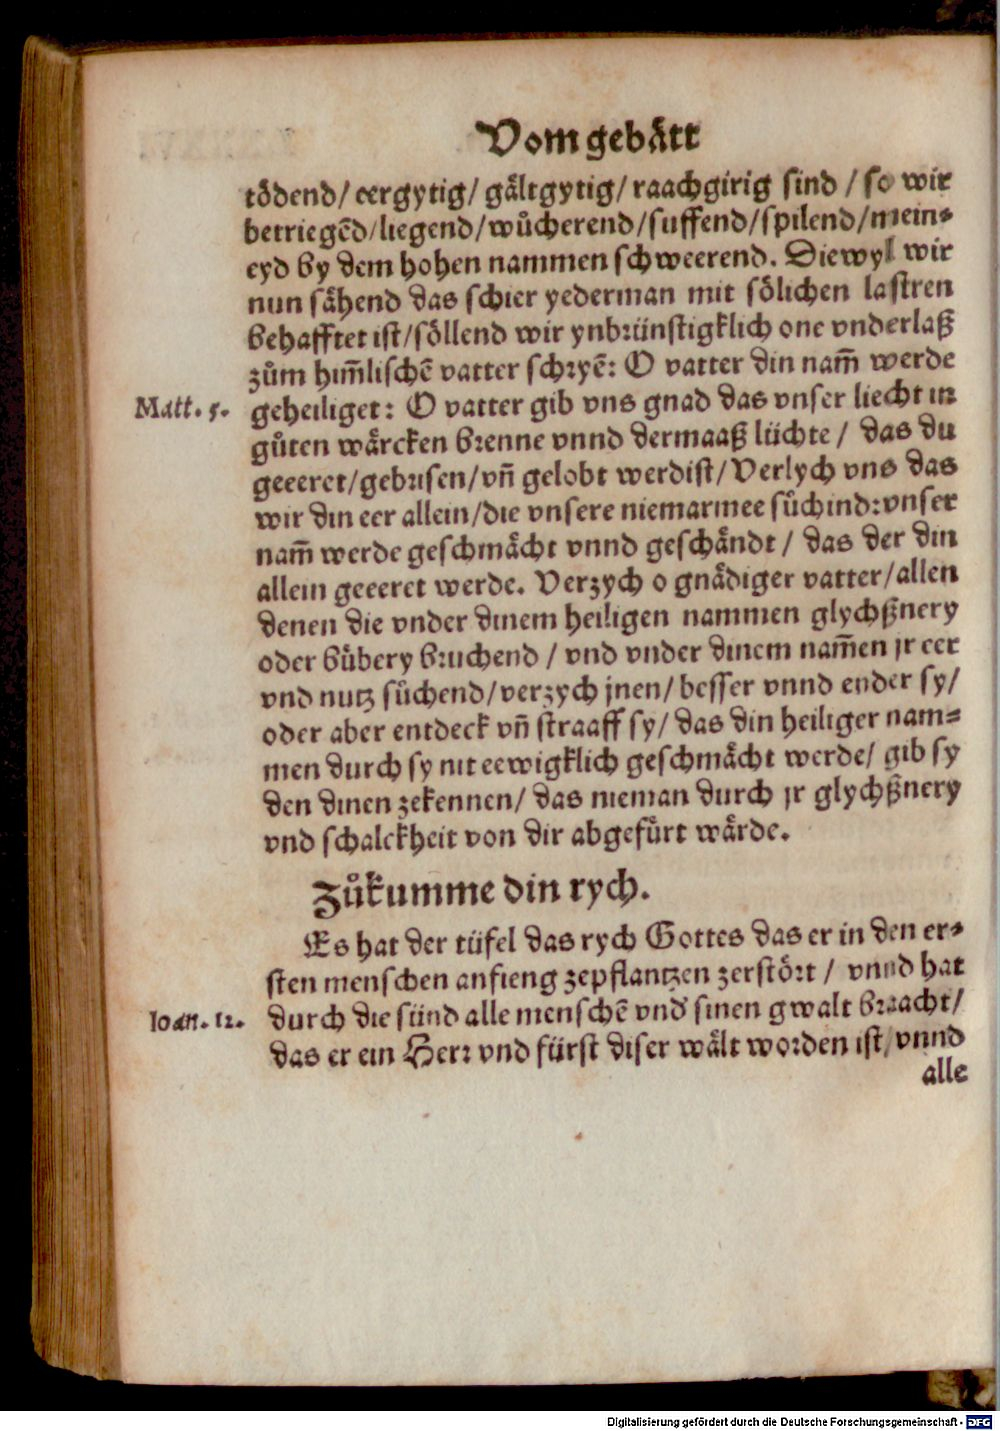 Vom gebaͤtt
toͤdend/ eergytig/ gaͤltgytig/ raachgirig sind / so wir
betriegẽd/liegend/wuͦcherend/suffend/spilend/mein⸗
eyd by dem hohen nammen schweerend. Diewyl wir
nun saͤhend das schier yederman mit soͤlichen lastren
behafftet ist/soͤllend wir ynbrünstigklich one vnderlaß
zuͦm him̃lischẽ vatter schryẽ: O vatter din nam̃ werde
Matt. 5. geheiliget: O vatter gib vns gnad das vnser liecht in
guͦten waͤrcken brenne vnnd dermaaß lüchte / das du
geeeret/gebrisen/vñ gelobt werdist/ Verlych vns das
wir din eer allein/die vnsere niemarmee suͦchind:vnser
nam̃ werde geschmaͤcht vnnd geschaͤndt / das der din
allein geeeret werde. Verzych o gnaͤdiger vatter/allen
denen die vnder dinem heiligen nammen glychßnery
oder buͤbery bruchend / vnd vnder dinem nam̃en jr eer
vnd nutz suͦchend/verzych jnen/ besser vnnd ender sy/
oder aber entdeck vñ straaff sy/ das din heiliger nam⸗
men durch sy nit eewigklich geschmaͤcht werde/ gib sy
den dinen zekennen/ das nieman durch jr glychßnery
vnd schalckheit von dir abgefuͤrt waͤrde.
Zuͦkumme din rych.
Es hat der tüfel das rych Gottes das er in den er⸗
sten menschen anfieng zepflantzen zerstoͤrt / vnnd hat
Ioan. 12. durch die sünd alle menschẽ vnd̓ sinen gwalt braacht/
das er ein Herr vnd fürst diser waͤlt worden ist/ vnnd
alle
Digitalisierung gefördert durch die Deutsche Forschungsgemeinschaft - DFG